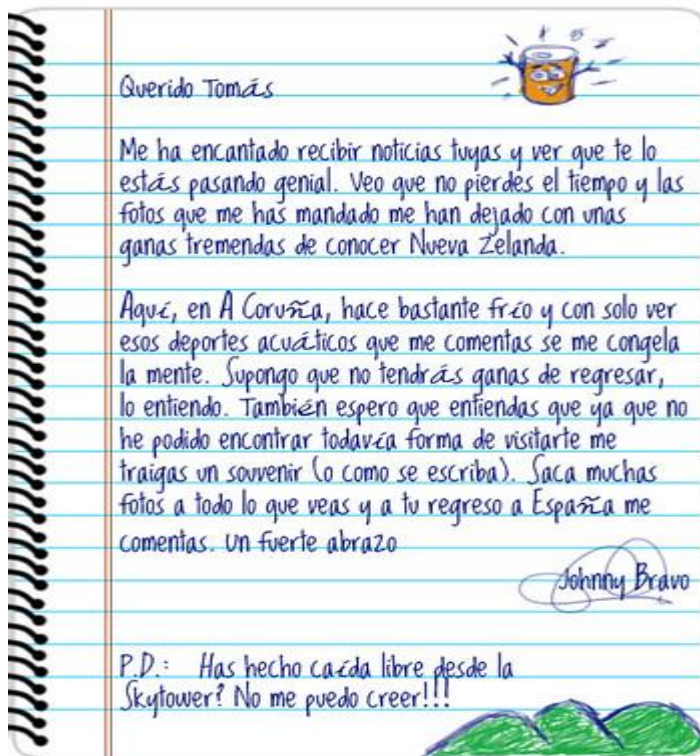 Querido Tomás
Me ha encantado recibir noticias tuyas y ver que te lo
estás pasando genial. Veo que no pierdes el tiempo y las
fotos que me has mandado me han dejado con unas
ganas tremendas de conocer Nueva Zelanda.
Aquí, en A Coruña, hace bastante frío y con solo ver
esos deportes acuáticos que me comentas se me congela
la mente. Supongo que no tendrás ganas de regresar,
lo entiendo. También espero que entiendas que ya que no
he podido encontrar todavía forma de visitarte me
traigas un souvenir (o como se escriba). Saca muchas
fotos a todo lo que veas y a tu regreso a España me
comentas. un fuerte abrazo
Johnny Bravo
P.D.: Has hecho caída libre desde la
Skytower? No me puedo creer!!!